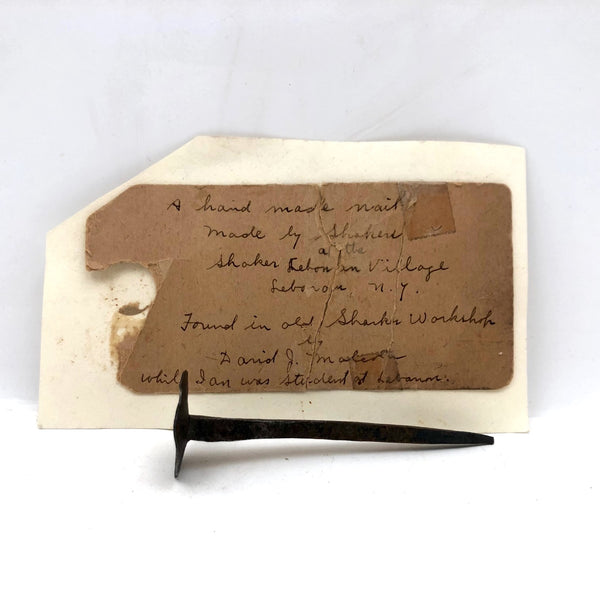 A hand made nail
Made by Shakers
at the
Shaker Lebonan Village
Lebonan, N.Y.
Found in old Sharker Workshop
by
David J.
while Ian was student at Lebanon.